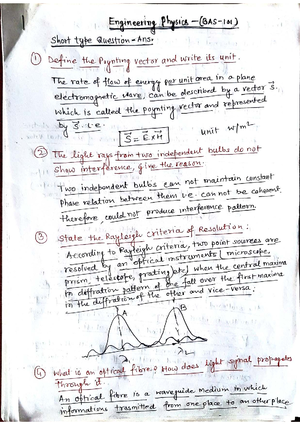 Engineering Physics - (BAS-101)
Short type Question - Ans.
① Define the Poynting vector and write its unit.
The rate of flow of energy per unit area in a plane
electromagnetic wave, can be described by a vector S⃗
which is called the poynting vector and represented
by S⃗ i.e.
S⃗ = E⃗ x H⃗ unit w/m²
② The light rays from two independent bulbs do not
show interference, give the reason.
Two independent bulbs can not maintain constant
Phase relation between them i.e. can not be coherent.
therefore could not produce interference pattern.
③ State the Rayleigh criteria of Resolution:
According to Rayleigh criteria, two point sources are
resolved by an optical instruments (microscope,
prism, telescope, grating etc) when the central maxima
in diffraction pattern of one fall over the first minima
in the diffraction of the other and vice-versa.
A B
λ₁ λ₂
④ What is an optical fibre? How does light signal propagates
through it.
An optical fibre is a waveguide medium in which
informations trasmitted from one place to an other place